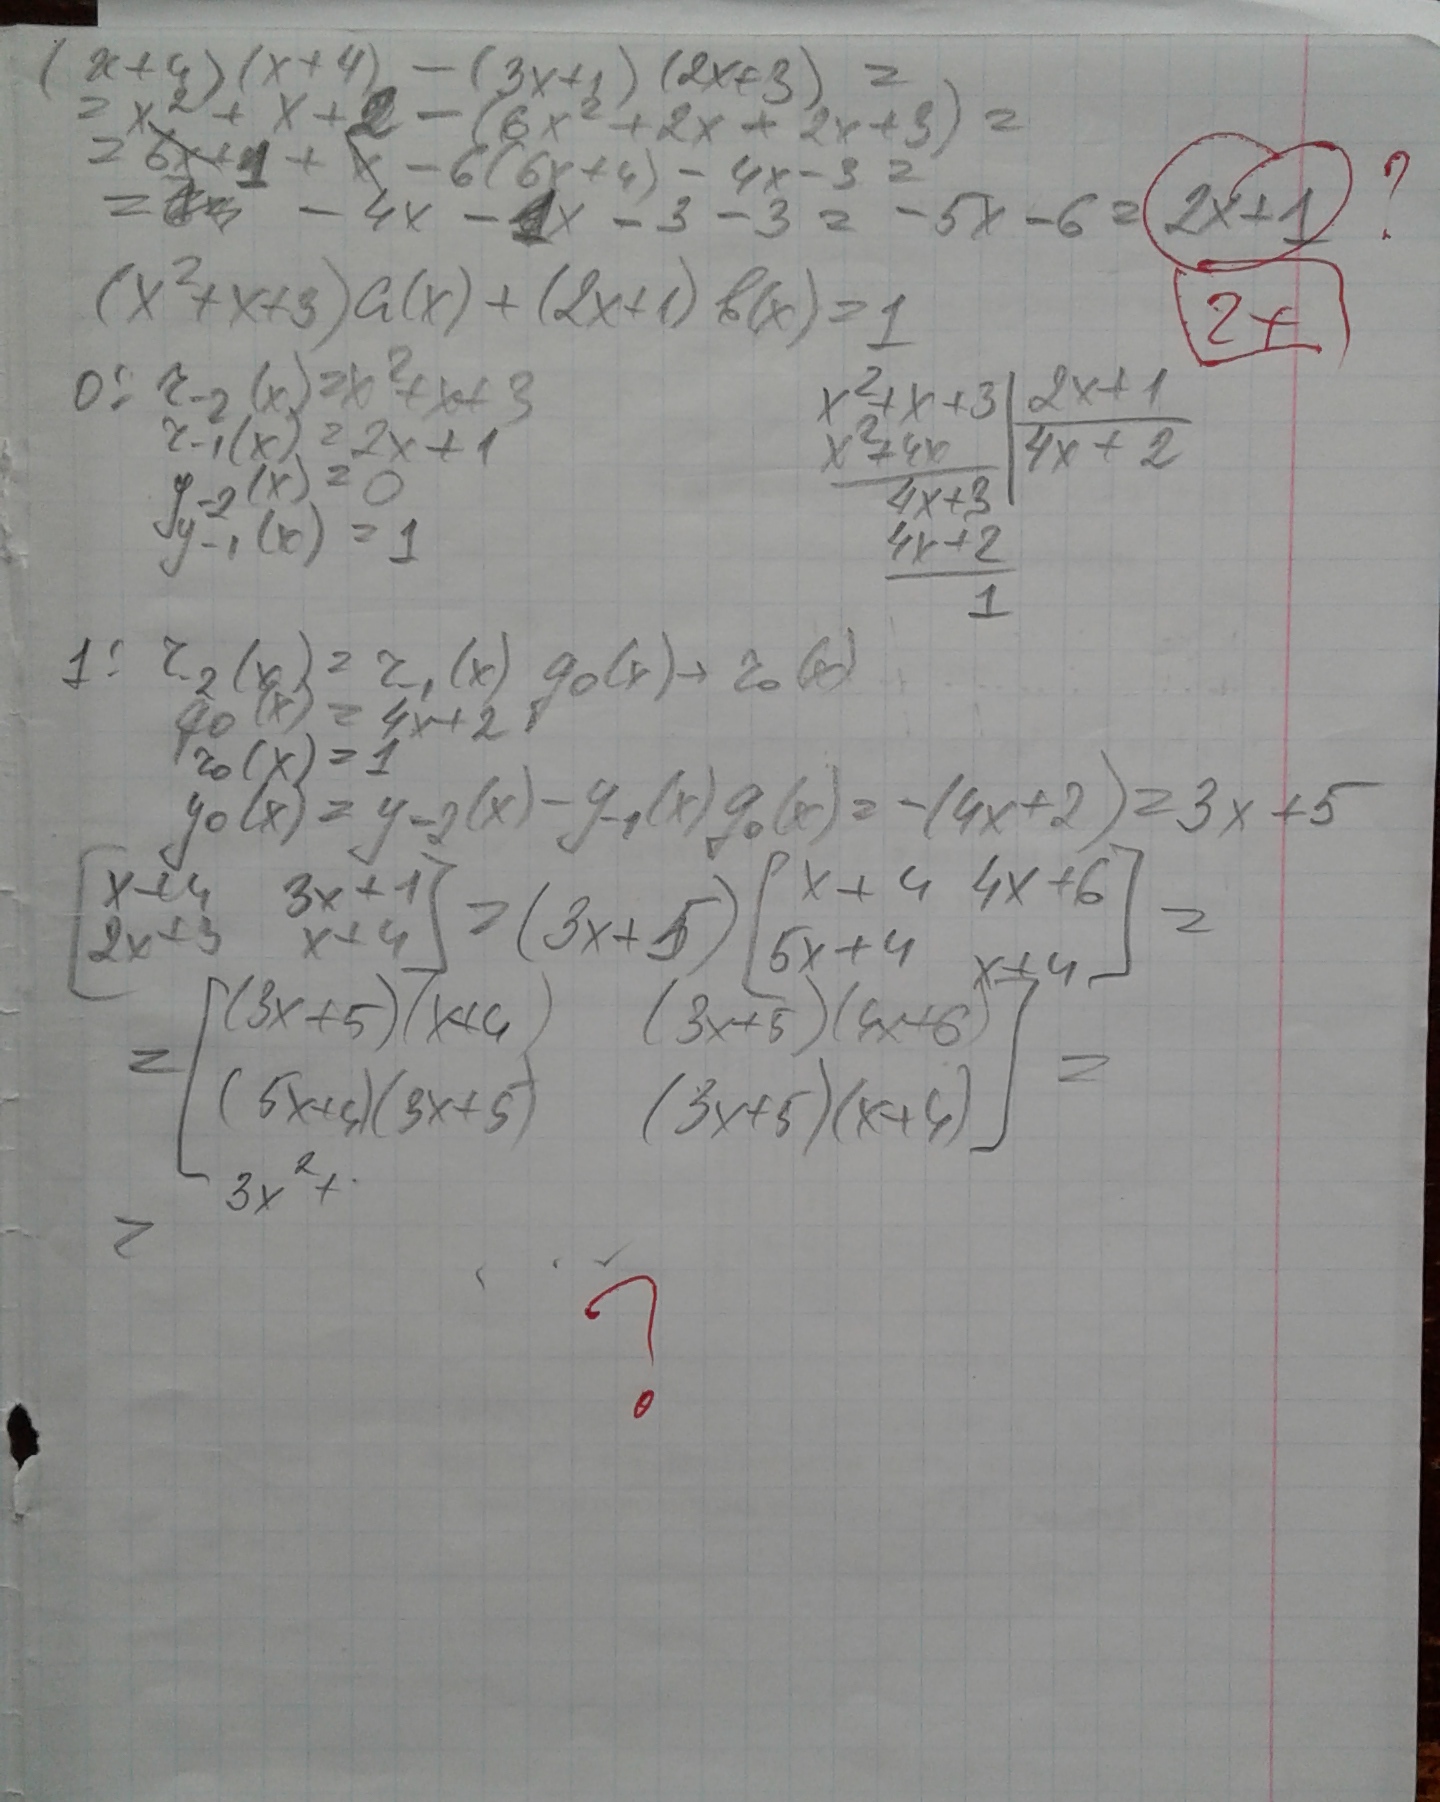 (x+4)(x+4) - (3x+1)(2x+3) =
= x² + x + 2 - (6x² + 2x + 2x + 3) =
= 6x+1 + x - 6(6x+4) - 4x - 3 =
= - 4x - 1x - 3 - 3 = - 5x - 6 = 2x+1 ?
2x
(x²+x+3)a(x) + (2x+1)b(x) = 1
0: r₋₂(x) = x²+x+3
r₋₁(x) = 2x+1
y₋₂(x) = 0
y₋₁(x) = 1
x²+x+3 | 2x+1
x²+4x | 4x+2
4x+3
4x+2
1
1: r₂(x) = r₁(x) q₀(x) + r₀(x)
q₀(x) = 4x+2
r₀(x) = 1
y₀(x) = y₋₂(x) - y₋₁(x) q₀(x) = -(4x+2) = 3x+5
[x+4 3x+1
2x+3 x+4] = (3x+5) [x+4 4x+6
5x+4 x+4] =
= [(3x+5)(x+4) (3x+5)(4x+6)
(5x+4)(3x+5) (3x+5)(x+4)] =
3x²+
=
?